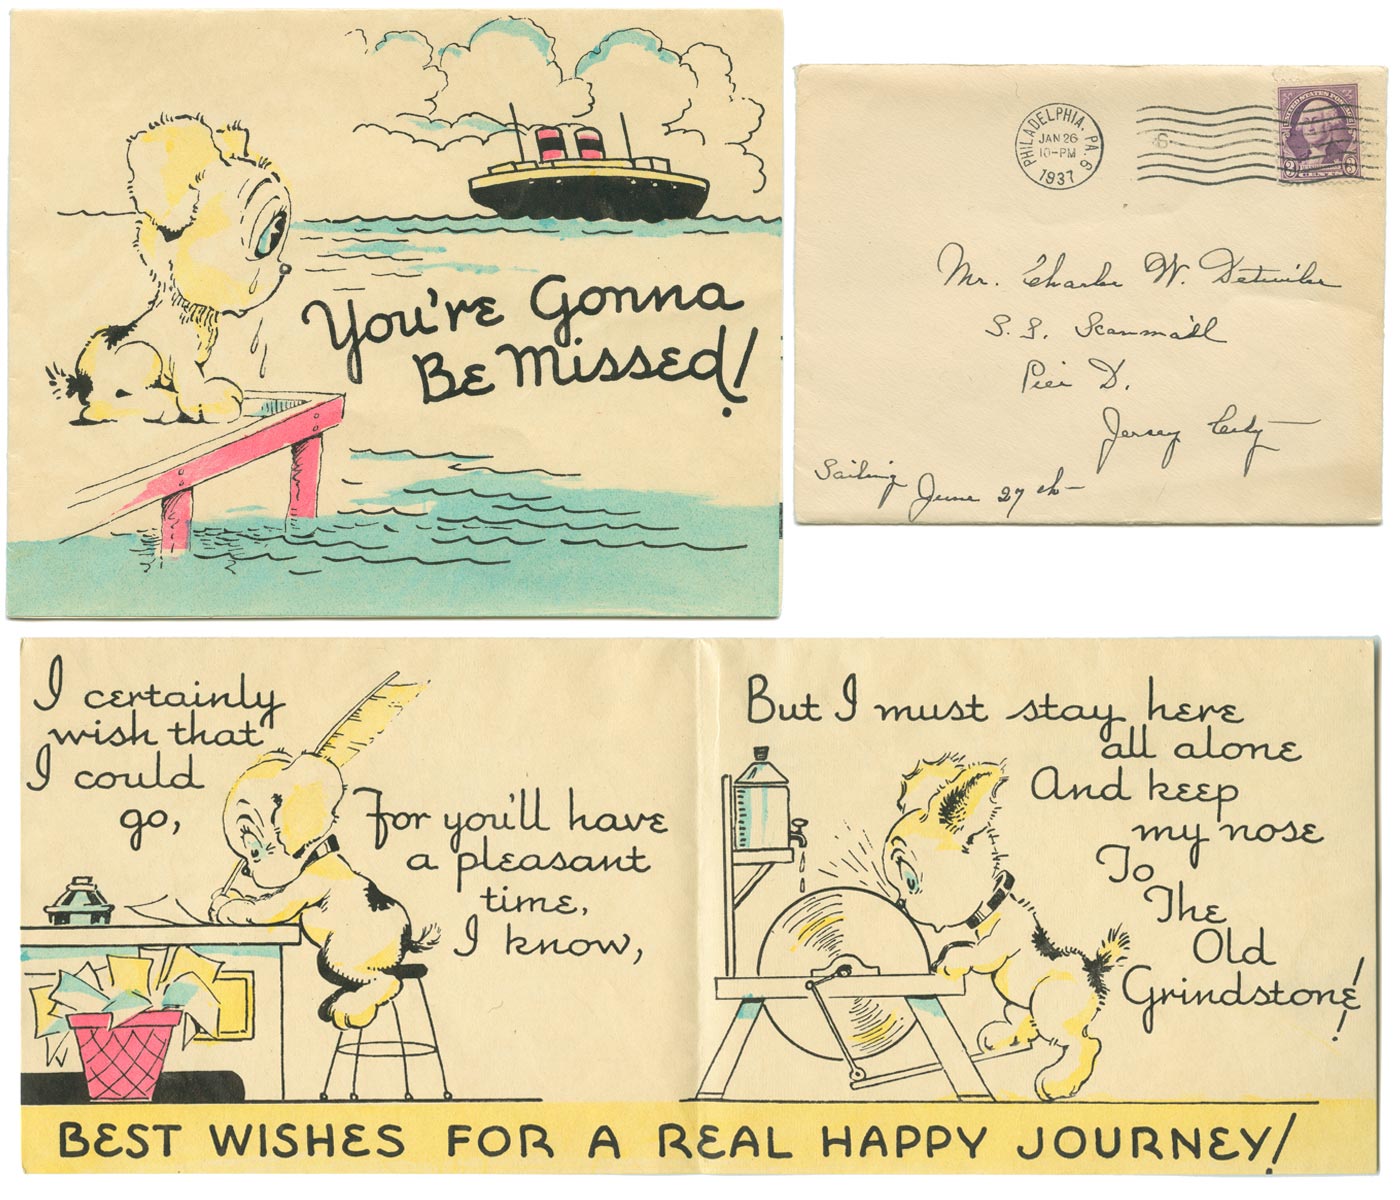 You're Gonna
Be Missed!
PHILADELPHIA, PA. 6
JAN 26
10-PM
1937
6
UNITED STATES POSTAGE
3 3
Mr. Charles W. Detwiler
S. S. Scanmail
Pier D.
Jersey City
Sailing June 27th
I certainly
wish that
I could
go,
For you'll have
a pleasant
time,
I know,
But I must stay here
all alone
And keep
my nose
To
The
Old
Grindstone!
BEST WISHES FOR A REAL HAPPY JOURNEY!